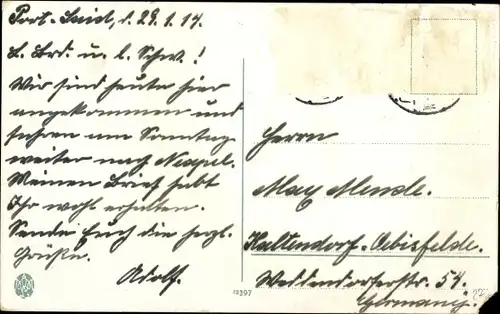 Port-Said, d. 29.1.14.
L. Brd. u. l. Schw.!
Wir sind heute hier
angekommen und
fahren am Sonntag
weiter nach Neapel.
Meinen Brief habt
Ihr wohl erhalten.
Sende Euch die herzl.
Grüße.
Adolf.
Herrn
Max Mende.
Kaltendorf-Oebisfelde.
Weddendorferstr. 54.
Germany.